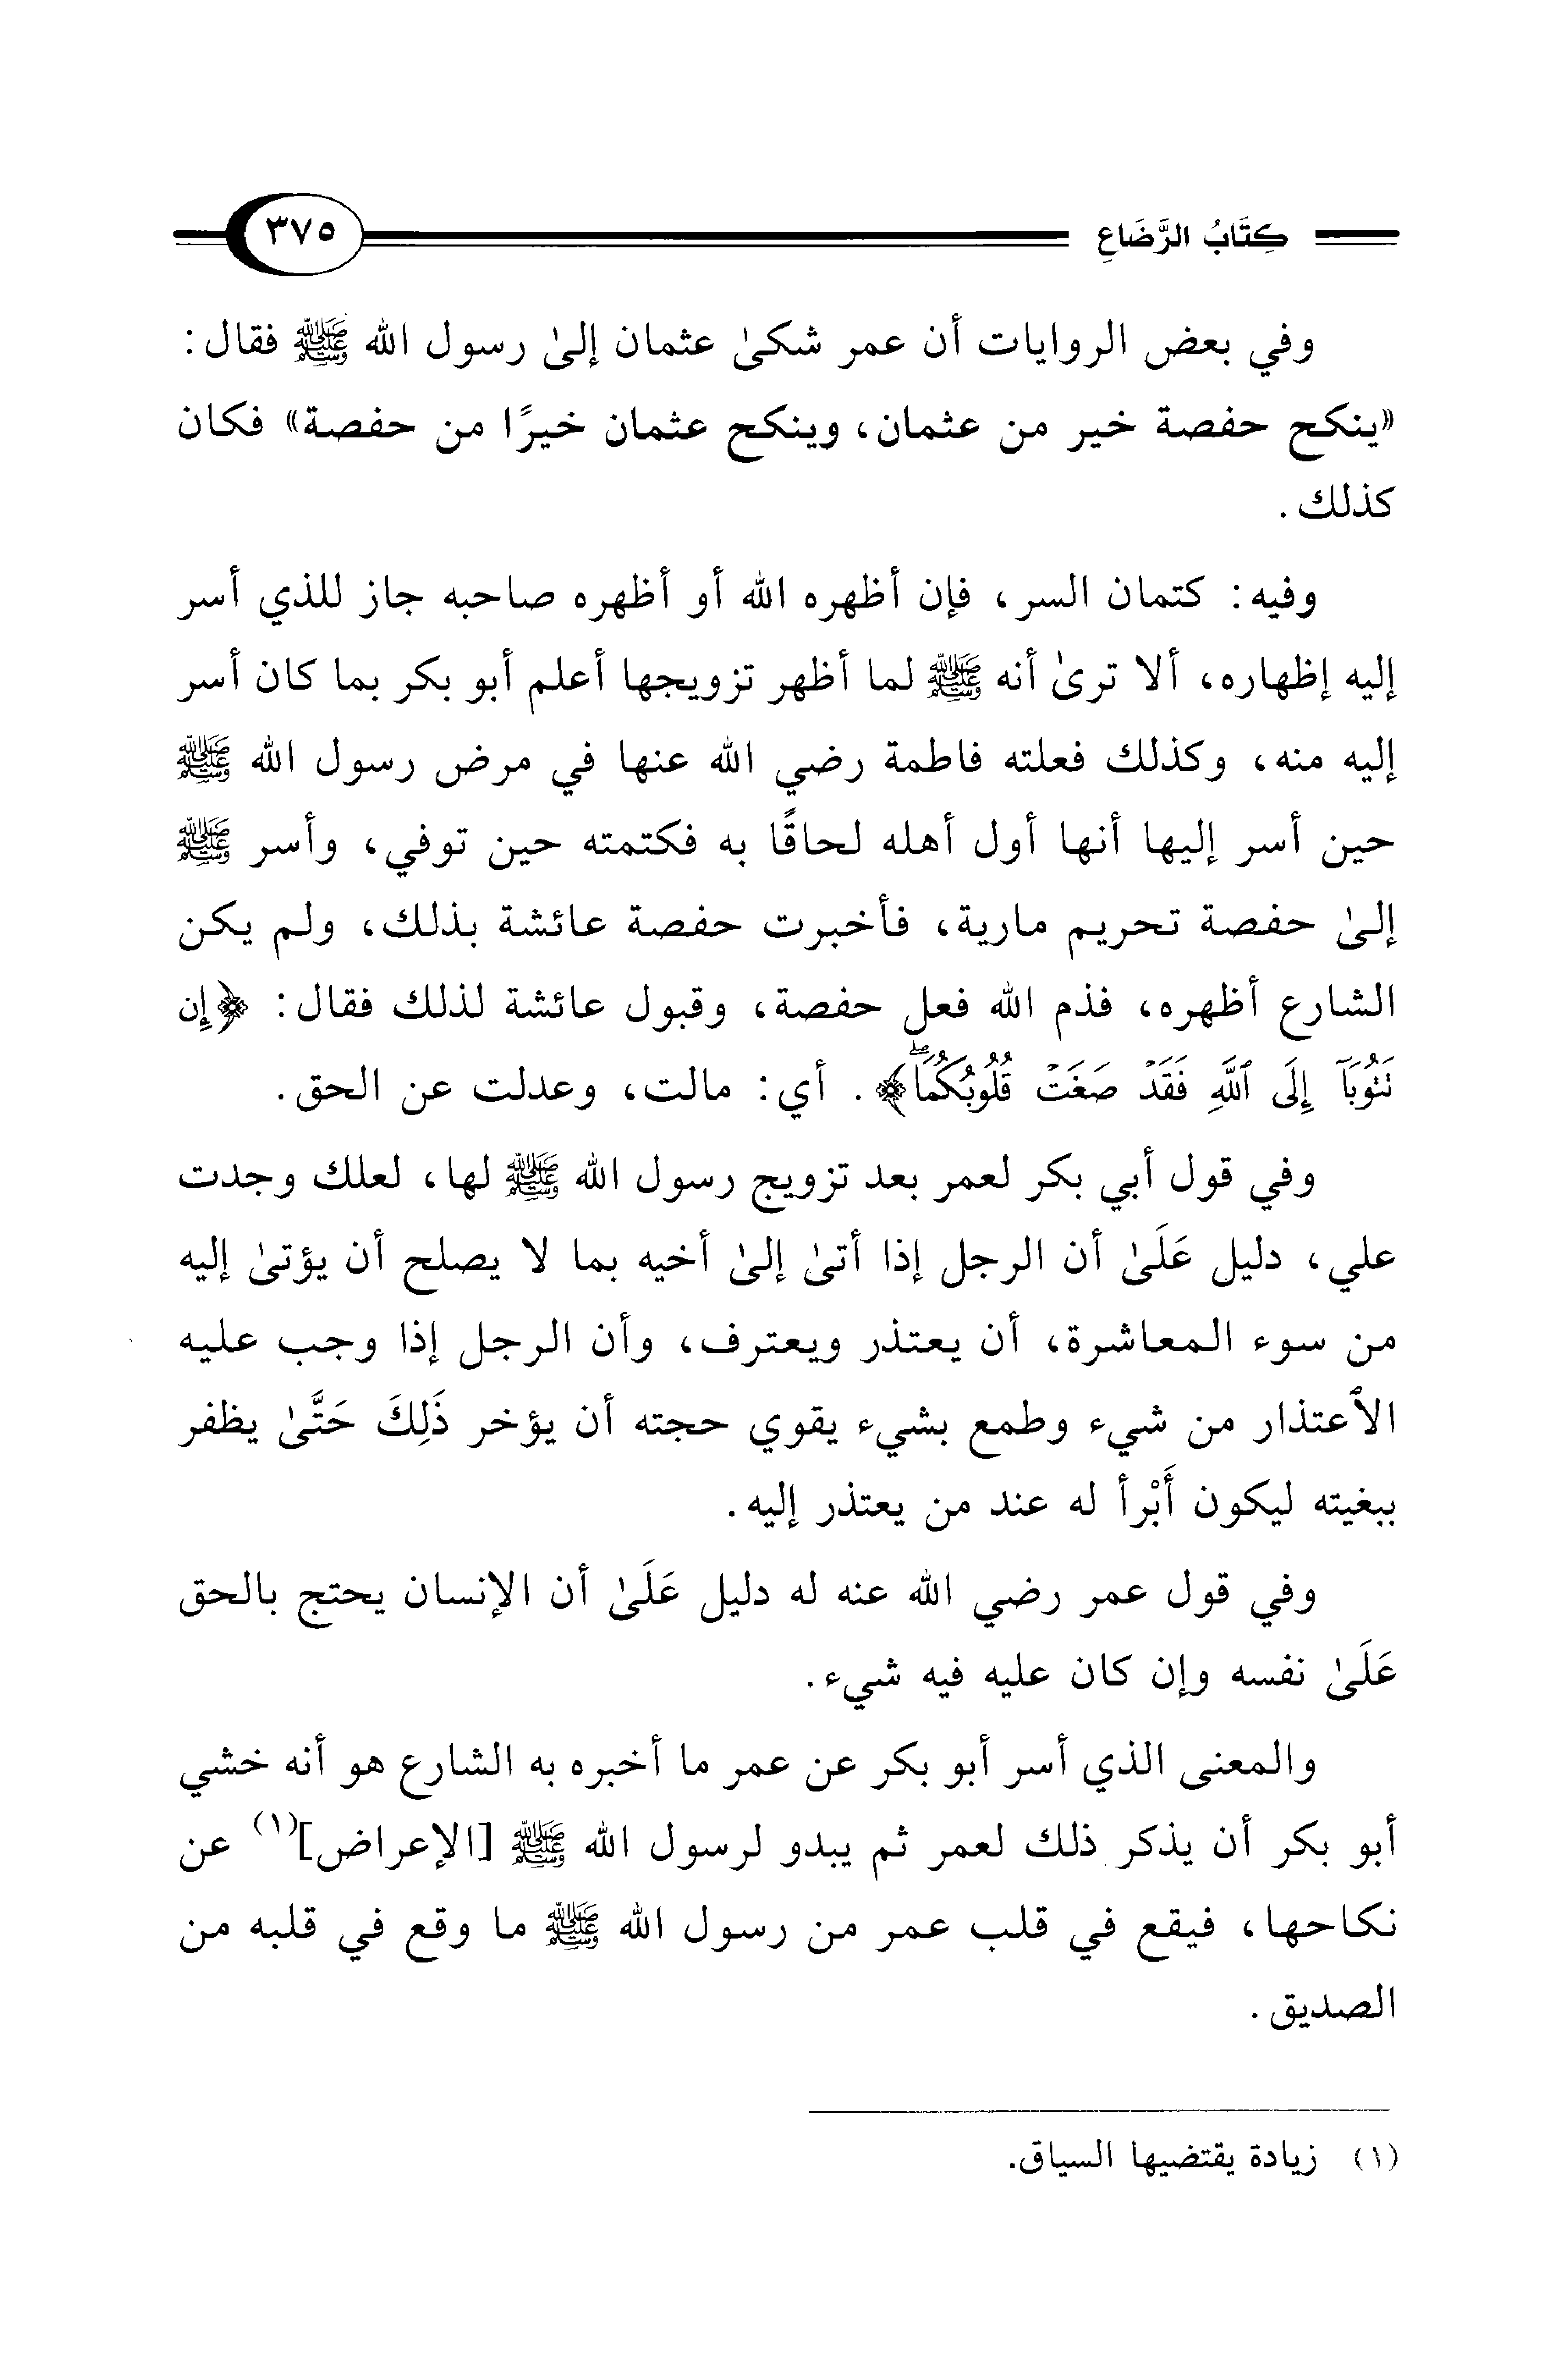 كِتَابُ الرَّضَاعِ ٣٧٥
وفي بعض الروايات أن عمر شكىٰ عثمان إلىٰ رسول الله ﷺ فقال:
«ينكح حفصة خير من عثمان، وينكح عثمان خيرًا من حفصة» فكان
كذلك.
وفيه: كتمان السر، فإن أظهره الله أو أظهره صاحبه جاز للذي أسر
إليه إظهاره، ألا ترىٰ أنه ﷺ لما أظهر تزويجها أعلم أبو بكر بما كان أسر
إليه منه، وكذلك فعلته فاطمة رضي الله عنها في مرض رسول الله ﷺ
حين أسر إليها أنها أول أهله لحاقًا به فكتمته حين توفي، وأسر ﷺ
إلىٰ حفصة تحريم مارية، فأخبرت حفصة عائشة بذلك، ولم يكن
الشارع أظهره، فذم الله فعل حفصة، وقبول عائشة لذلك فقال: ﴿إِن
نَتُوبَآ إِلَى ٱللَّهِ فَقَدۡ صَغَتۡ قُلُوبُكُمَاۖ﴾. أي: مالت، وعدلت عن الحق.
وفي قول أبي بكر لعمر بعد تزويج رسول الله ﷺ لها، لعلك وجدت
علي، دليل عَلَىٰ أن الرجل إذا أتىٰ إلىٰ أخيه بما لا يصلح أن يؤتىٰ إليه
من سوء المعاشرة، أن يعتذر ويعترف، وأن الرجل إذا وجب عليه
الاٌعتذار من شيء وطمع بشيء يقوي حجته أن يؤخر ذَلِكَ حَتَّىٰ يظفر
ببغيته ليكون أَبْرأ له عند من يعتذر إليه.
وفي قول عمر رضي الله عنه له دليل عَلَىٰ أن الإنسان يحتج بالحق
عَلَىٰ نفسه وإن كان عليه فيه شيء.
والمعنى الذي أسر أبو بكر عن عمر ما أخبره به الشارع هو أنه خشي
أبو بكر أن يذكر ذلك لعمر ثم يبدو لرسول الله ﷺ [الإعراض](١) عن
نكاحها، فيقع في قلب عمر من رسول الله ﷺ ما وقع في قلبه من
الصديق.
(١) زيادة يقتضيها السياق.